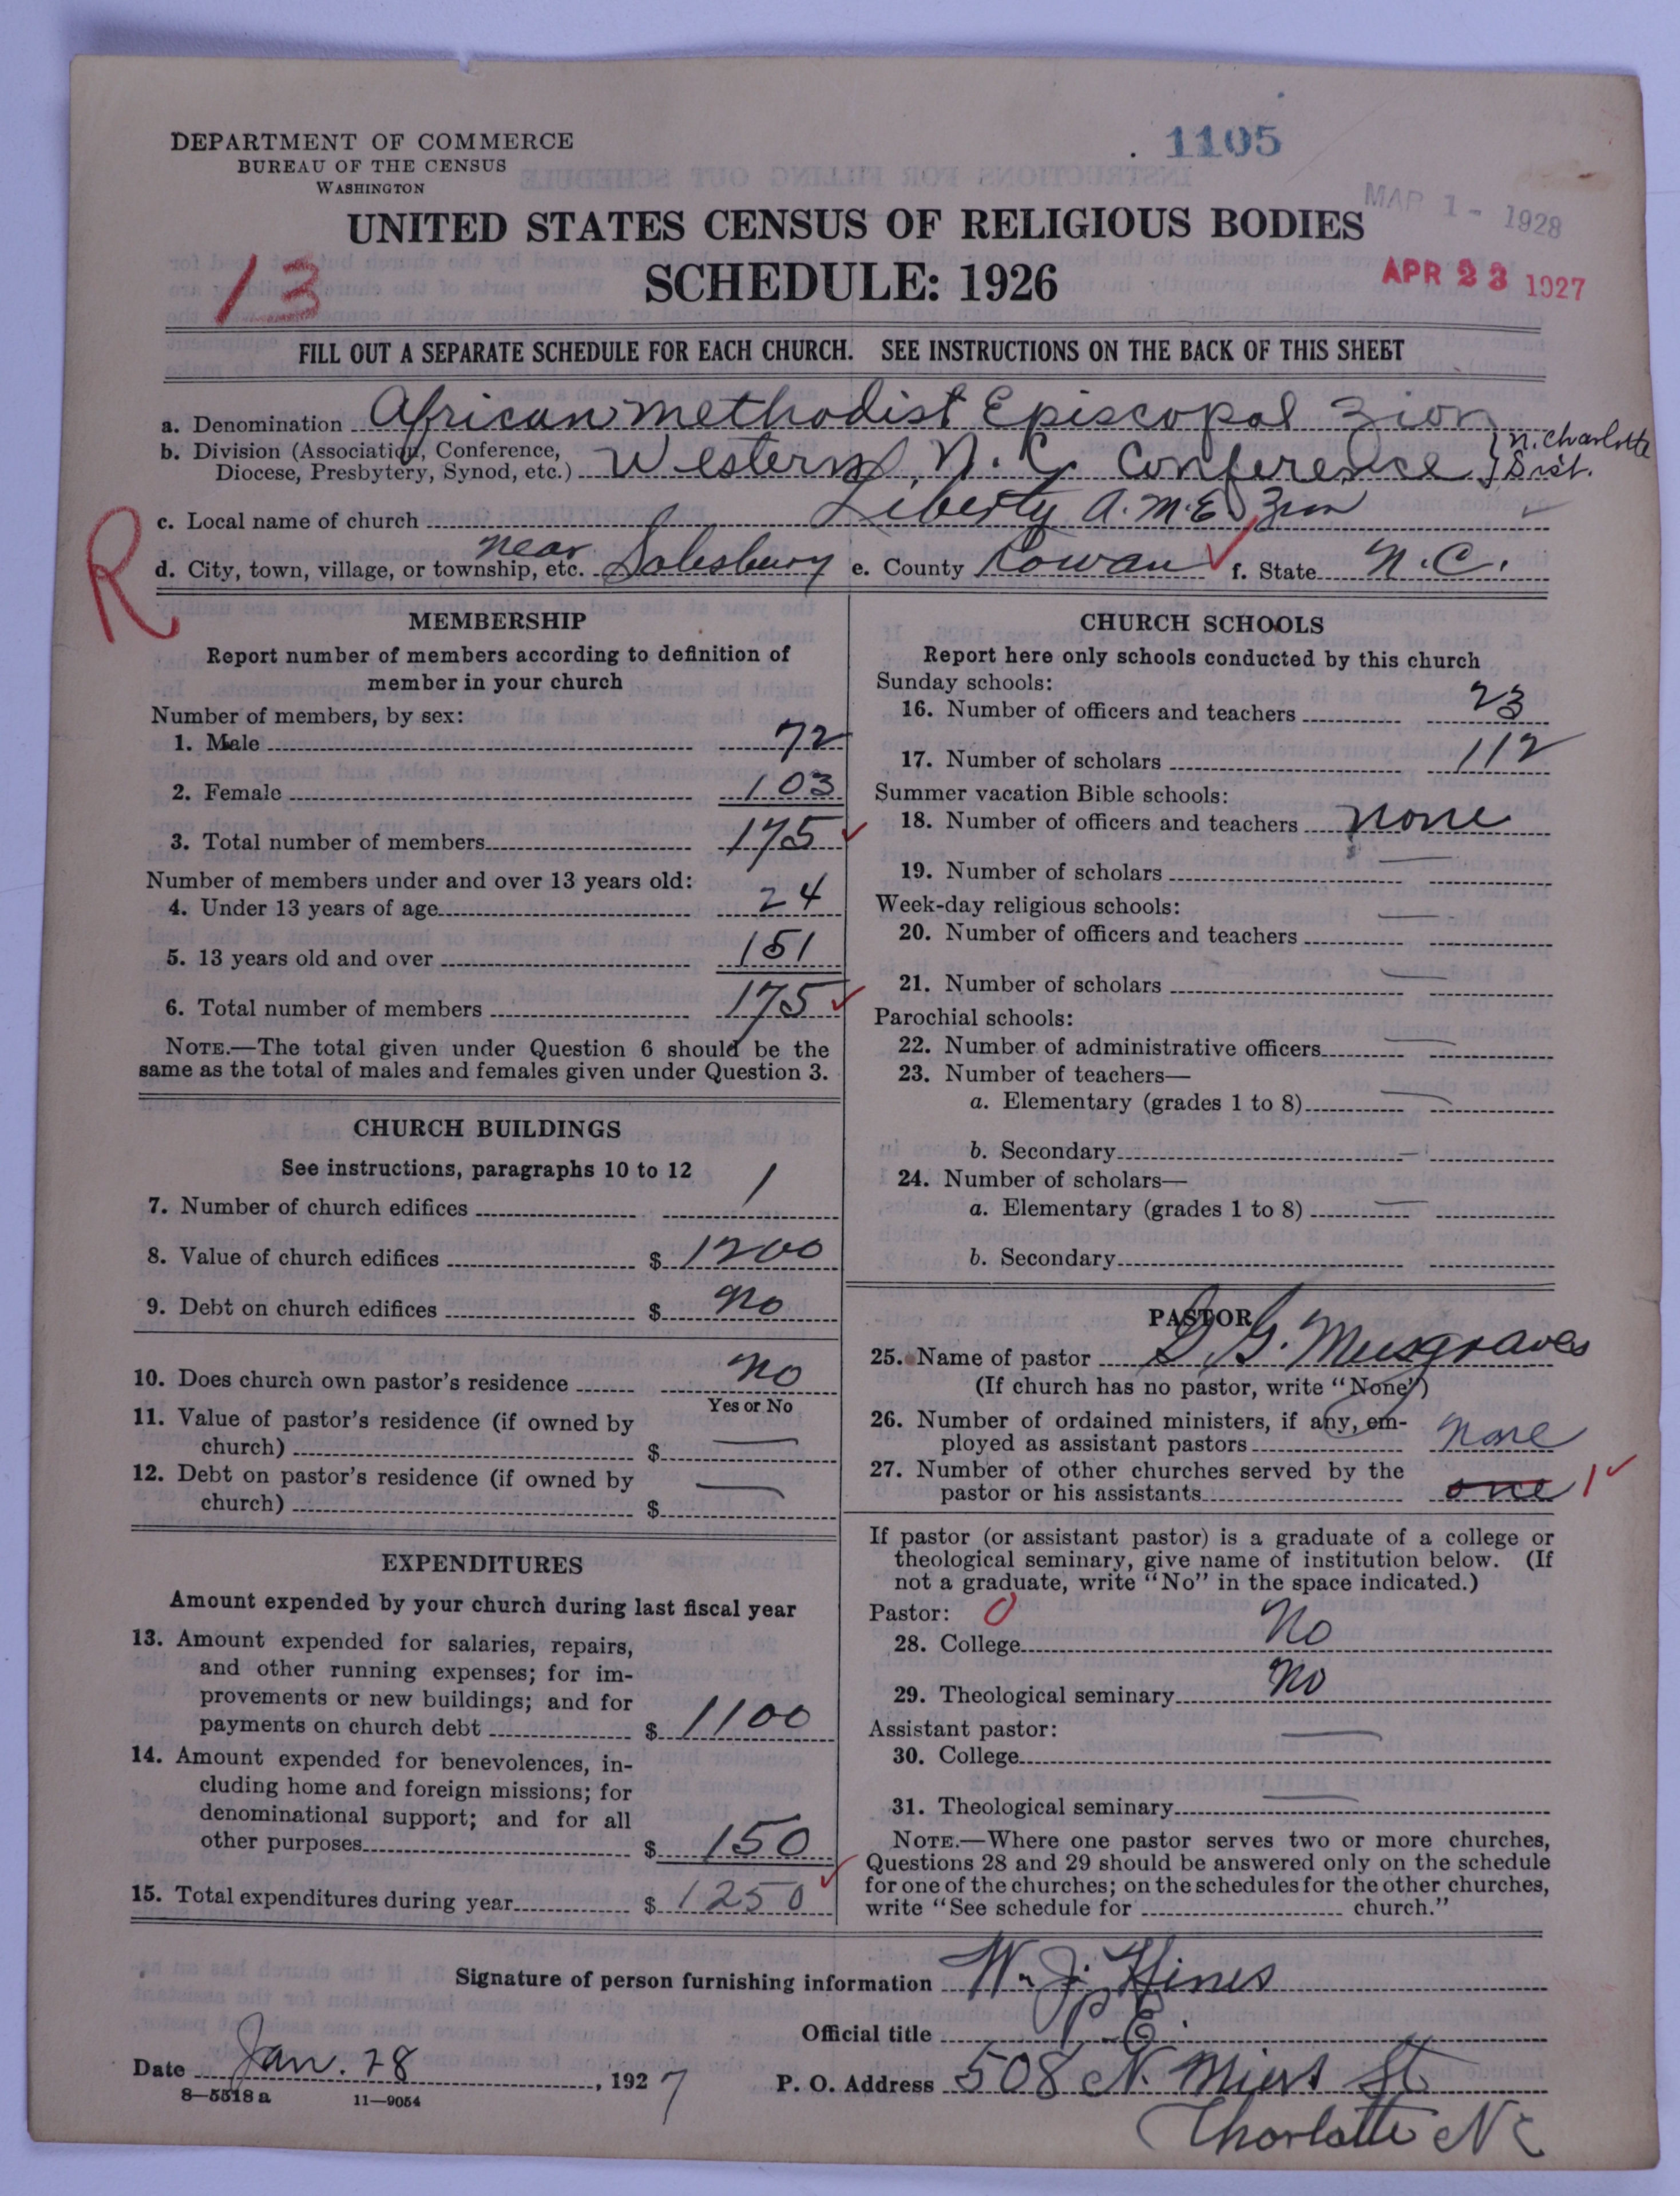 DEPARTMENT OF COMMERCE
BUREAU OF THE CENSUS
WASHINGTON
1105
MAR 1 - 1928
UNITED STATES CENSUS OF RELIGIOUS BODIES
SCHEDULE: 1926
13
APR 23 1927
FILL OUT A SEPARATE SCHEDULE FOR EACH CHURCH. SEE INSTRUCTIONS ON THE BACK OF THIS SHEET
a. Denomination African Methodist Episcopal Zion
b. Division (Association, Conference, Diocese, Presbytery, Synod, etc.) Western N.C. Conference } N. Charlotte Dist.
c. Local name of church Liberty A.M.E. Zion
R
d. City, town, village, or township, etc. near Salesbury e. County Rowan f. State N.C.
MEMBERSHIP
Report number of members according to definition of
member in your church
Number of members, by sex:
1. Male 72
2. Female 103
3. Total number of members 175
Number of members under and over 13 years old:
4. Under 13 years of age 24
5. 13 years old and over 151
6. Total number of members 175
NOTE.—The total given under Question 6 should be the
same as the total of males and females given under Question 3.
CHURCH BUILDINGS
See instructions, paragraphs 10 to 12
7. Number of church edifices 1
8. Value of church edifices $ 1200
9. Debt on church edifices $ No
10. Does church own pastor's residence No
Yes or No
11. Value of pastor's residence (if owned by
church) $ —
12. Debt on pastor's residence (if owned by
church) $ —
EXPENDITURES
Amount expended by your church during last fiscal year
13. Amount expended for salaries, repairs,
and other running expenses; for im-
provements or new buildings; and for
payments on church debt $ 1100
14. Amount expended for benevolences, in-
cluding home and foreign missions; for
denominational support; and for all
other purposes $ 150
15. Total expenditures during year $ 1250
CHURCH SCHOOLS
Report here only schools conducted by this church
Sunday schools:
16. Number of officers and teachers 23
17. Number of scholars 112
Summer vacation Bible schools:
18. Number of officers and teachers none
19. Number of scholars —
Week-day religious schools:
20. Number of officers and teachers —
21. Number of scholars —
Parochial schools:
22. Number of administrative officers —
23. Number of teachers—
a. Elementary (grades 1 to 8) —
b. Secondary —
24. Number of scholars—
a. Elementary (grades 1 to 8) —
b. Secondary
PASTOR
25. Name of pastor D. G. Musgraves
(If church has no pastor, write "None")
26. Number of ordained ministers, if any, em-
ployed as assistant pastors None
27. Number of other churches served by the
pastor or his assistants one 1
If pastor (or assistant pastor) is a graduate of a college or
theological seminary, give name of institution below. (If
not a graduate, write "No" in the space indicated.)
Pastor: 0
28. College No
29. Theological seminary No
Assistant pastor:
30. College —
31. Theological seminary —
NOTE.—Where one pastor serves two or more churches,
Questions 28 and 29 should be answered only on the schedule
for one of the churches; on the schedules for the other churches,
write "See schedule for church."
Signature of person furnishing information W. J. Hines
Official title P. E.
Date Jan. 28, 1927
P. O. Address 508 N. Miers St
Charlotte NC
8—5518 a 11—9054